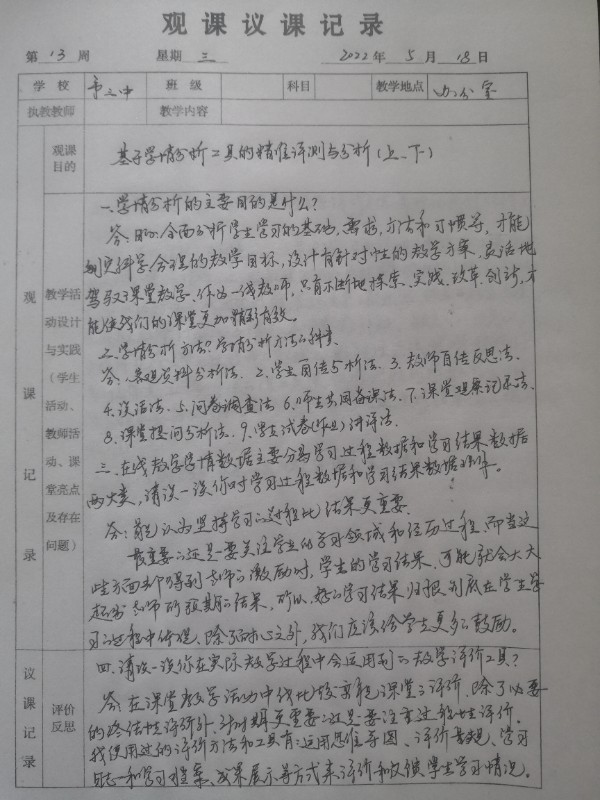 观课议课记录
第 13 周 星期 三 2022 年 5 月 18 日
学校 市三中 班级 科目 教学地点 办公室
执教教师 教学内容
观课目的
基于学情分析工具的精准评测与分析(上、下)
观课记录
教学活动设计与实践(学生活动、教师活动、课堂亮点及存在问题)
一、学情分析的主要目的是什么?
答:目的:全面分析学生学习的基础,需求,方法和习惯等,才能
制定科学、合理的教学目标,设计有针对性的教学方案,灵活地
驾驭课堂教学。作为一线教师,只有不断地探索、实践、改革、创新,才
能使我们的课堂更加精彩有效。
二、学情分析方法?学情分析方法的种类
答:1.客观资料分析法. 2.学生自估与析法. 3.教师自估反思法.
4.谈话法. 5.问卷调查法 6.师生共同备课法. 7.课堂观察记录法.
8.课堂提问分析法. 9.学生试卷(作业)讲评法.
三、在线教学学情数据主要分为学习过程数据和学习结果数据
两大类,请谈一谈你对学习过程数据和学习结果数据
答:我认为坚持学习的过程比结果更重要.
最重要的还是要关注学生的学习领域和经历过程.而当这
些方面都得到老师的激励时,学生的学习结果,可能就会大大
超出老师所预期的结果,所以,好的学习结果归根到底在学生学
习的过程中体现、除了耐心之外,我们应该给学生更多的鼓励。
议课记录
评价反思
四、请谈一谈你在实际教学过程中会运用到的教学评价工具?
答:在课堂教学活动中我比较重视课堂的评价.除了必要
的终结性评价外.更重要的还是要注重过程性评价.
我使用过的评价方法和工具有:运用思维导图、评价量规、学习
日志和学习档案、成果展示等方式来评价和反馈学生学习情况。